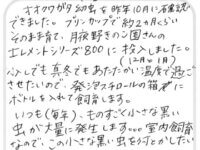 オオクワガタ幼虫を昨年10月に確認
できました。プリンカップで約2ヵ月くらい
そのまま育て、月夜野きのこ園さんの
エレメントシリーズ800に投入しました。
(12月から1月)
でも真冬でもあたたかい温度で過ご
させたいので、発泡スチロールの箱で
ボトルを入れて飼育します。
いつも(毎年)、ものすごく小さな黒い
虫が大量に発生します。。。室内飼育
なので、この小さな黒い虫を何とかしたい